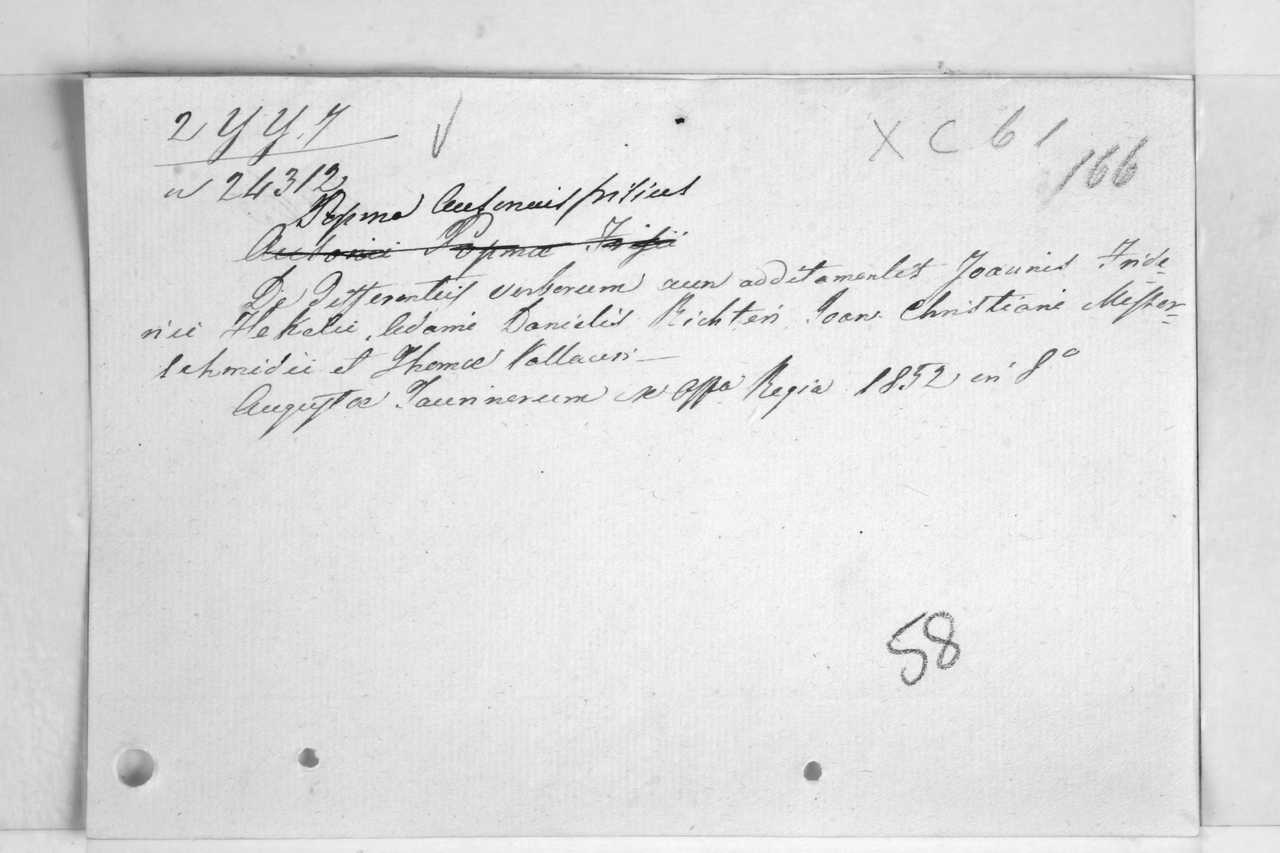 2 Y Y. 7
XC 61
166
n 24312
Popma Ausonius frisius
Ausonii Popmae Frisii
De Differentiis verborum cum additamentis Joannis Fride-
rici Hekelii, Adami Danielis Richteri Joan Christiani Messer-
schmidii et Thomae Vallauri
Augustae Taurinorum ex Offa Regia 1852 in 8°
58